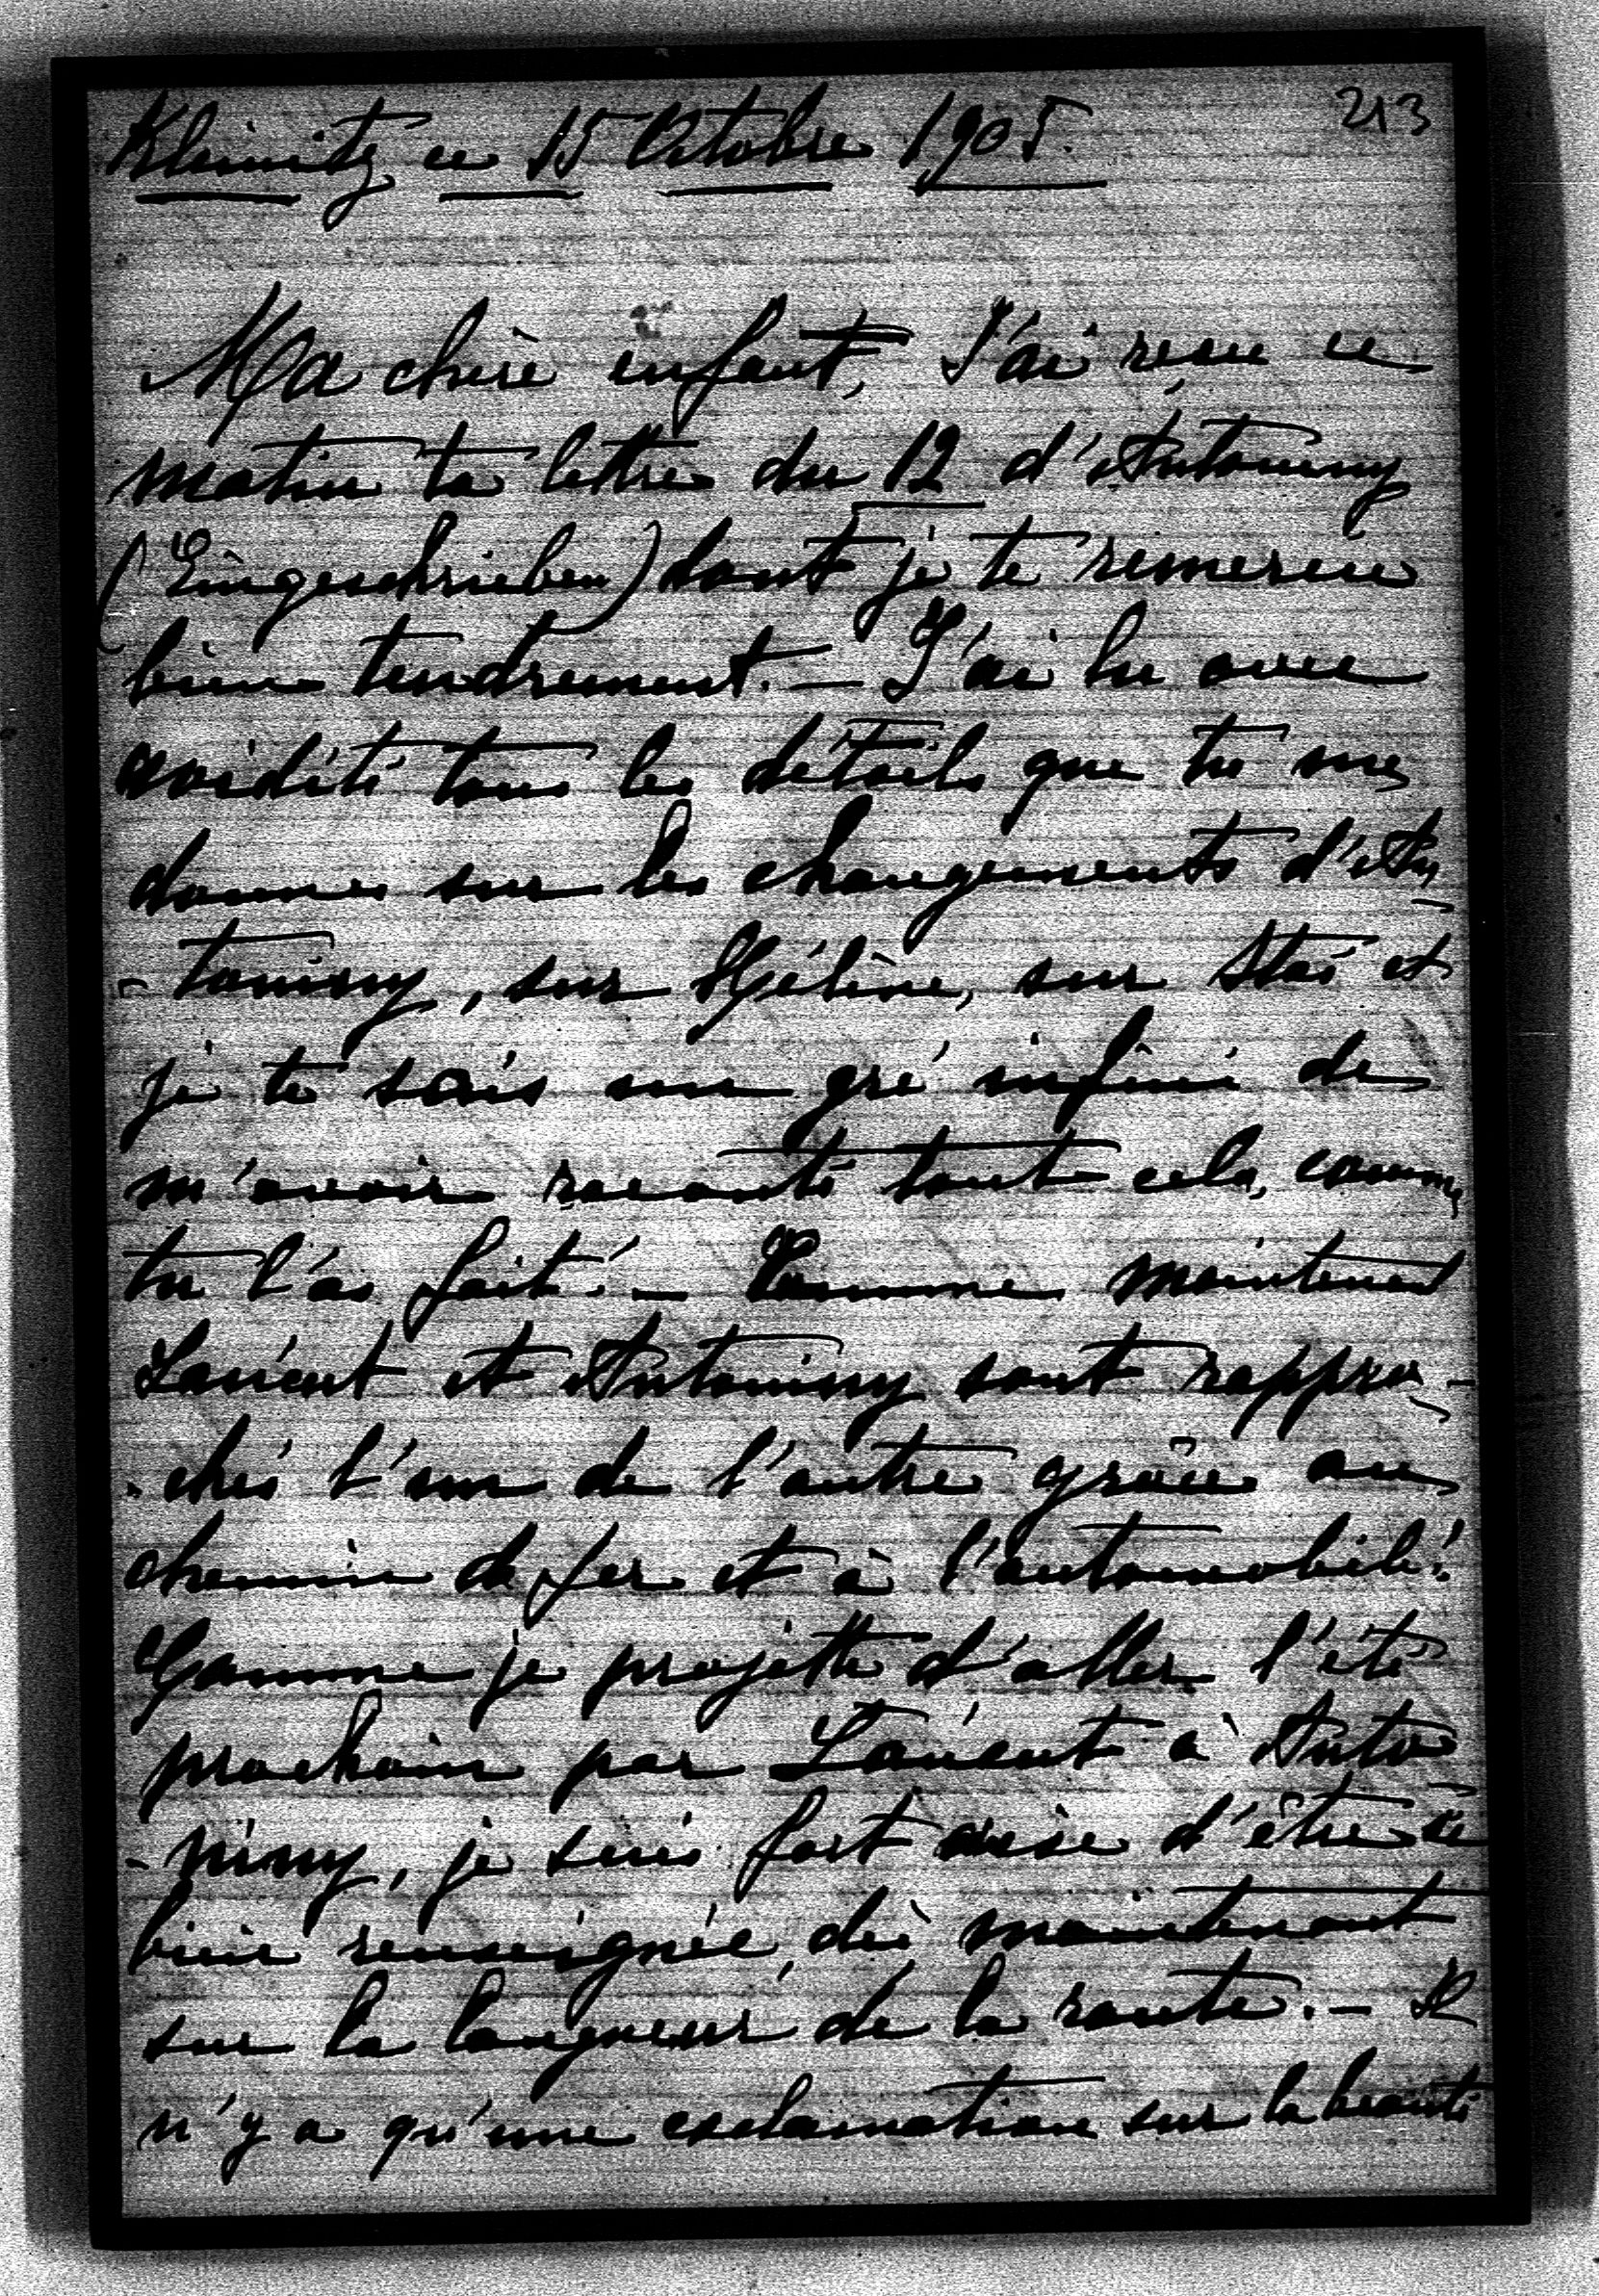 213
Kleinitz ce 15 Octobre 1905.
Ma chère enfant, J'ai reçu ce
matin ta lettre du 12 d'Antoniny
(Eingeschrieben) dont je te remercie
bien tendrement. — J'ai lu avec
avidité tous les détails que tu me
donnes sur les changements d'An-
-toniny, sur Hélène, sur Stas et
je te sais un gré infini de
m'avoir raconté tout cela, comme
tu l'as fait! — Comme maintenant
Lancut et Antoniny sont rappro-
-chés l'un de l'autre grâce au
chemin de fer et à l'automobile!
Comme je projette d'aller l'été
prochain par Lancut à Anto-
-niny, je suis fort aise d'être si
bien renseignée, dès maintenant
sur la longueur de la route. — Il
n'y a qu'une exclamation sur la beauté